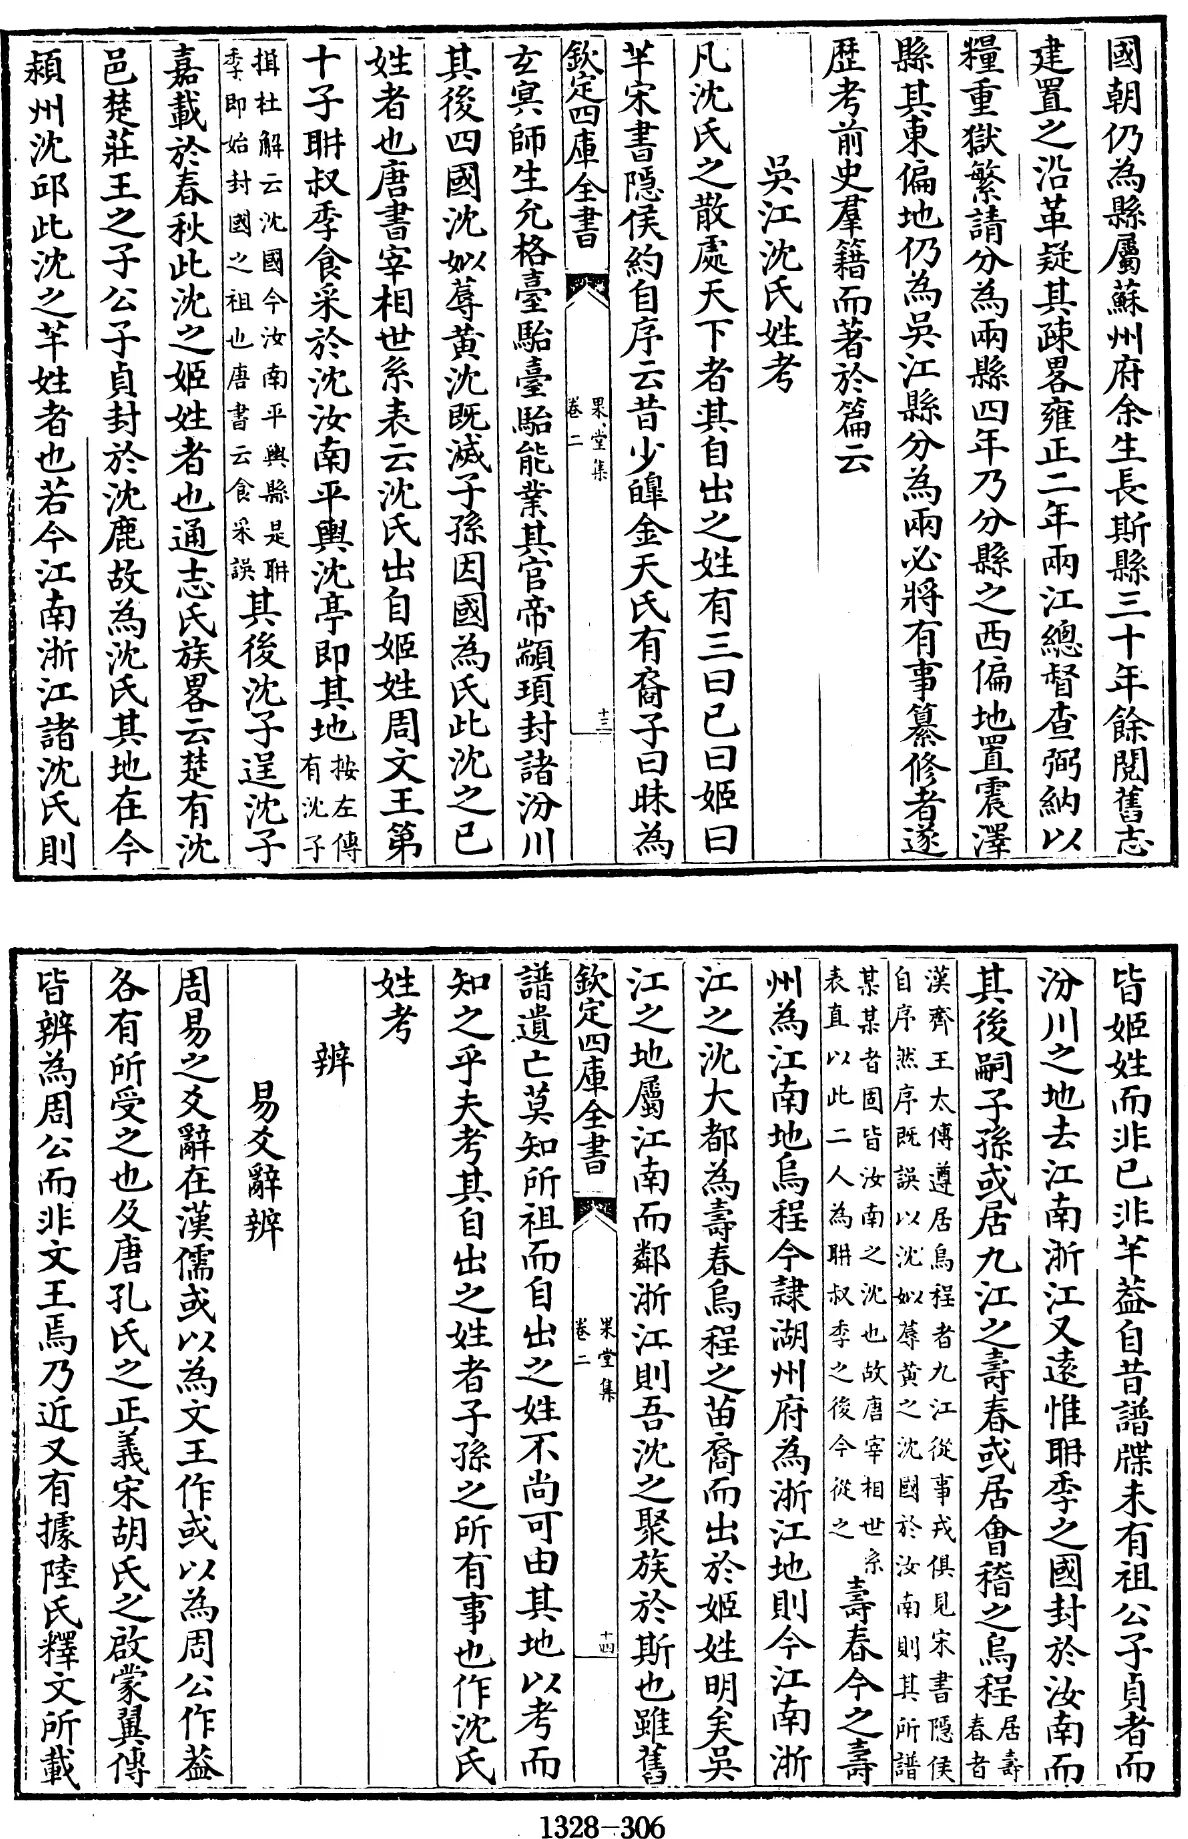 國朝仍為縣屬蘇州府余生長斯縣三十年餘閱舊志
建置之沿革疑其疎畧雍正二年兩江總督查弼納以
糧重獄繁請分為兩縣四年乃分縣之西偏地置震澤
縣其東偏地仍為吳江縣分為兩必將有事纂修者遂
歷考前史羣籍而著於篇云
吳江沈氏姓考
凡沈氏之散處天下者其自出之姓有三曰已曰姬曰
芈宋書隱侯約自序云昔少皥金天氏有裔子曰昧為
欽定四庫全書
果堂集
卷二
十三
玄冥師生允格臺駘臺駘能業其官帝顓頊封諸汾川
其後四國沈姒蓐黄沈既滅子孫因國為氏此沈之已
姓者也唐書宰相世系表云沈氏出自姬姓周文王第
十子耼叔季食采於沈汝南平輿沈亭即其地
按左傳
有沈子
揖杜解云沈國今汝南平輿縣是耼
季即始封國之祖也唐書云食采誤
其後沈子逞沈子
嘉載於春秋此沈之姬姓者也通志氏族畧云楚有沈
邑楚莊王之子公子貞封於沈鹿故為沈氏其地在今
潁州沈邱此沈之芈姓者也若今江南浙江諸沈氏則
皆姬姓而非已非芈葢自昔譜牒未有祖公子貞者而
汾川之地去江南浙江又遠惟耼季之國封於汝南而
其後嗣子孫或居九江之壽春或居會稽之烏程
居壽
春者
漢齊王太傅遵居烏程者九江從事戎俱見宋書隱侯
自序然序既誤以沈姒蓐黄之沈國於汝南則其所譜
某某者固皆汝南之沈也故唐宰相世系
表直以此二人為耼叔季之後今從之
壽春今之壽
州為江南地烏程今隷湖州府為浙江地則今江南浙
江之沈大都為壽春烏程之苗裔而出於姬姓明矣吳
江之地屬江南而鄰浙江則吾沈之聚族於斯也雖舊
欽定四庫全書
果堂集
卷二
十四
譜遺亡莫知所祖而自出之姓不尚可由其地以考而
知之乎夫考其自出之姓者子孫之所有事也作沈氏
姓考
辨
易爻辭辨
周易之爻辭在漢儒或以為文王作或以為周公作葢
各有所受之也及唐孔氏之正義宋胡氏之啟蒙翼傳
皆辨為周公而非文王焉乃近又有據陸氏釋文所載
1328-306